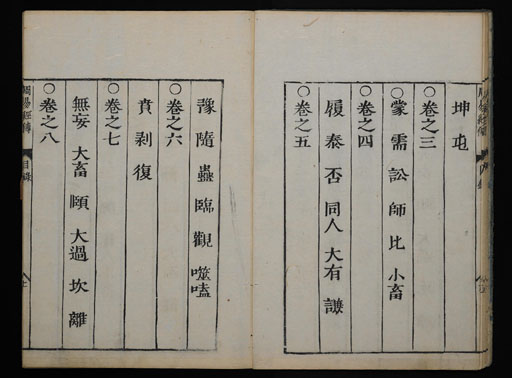 坤 屯
○卷之三
○蒙 需 訟 師 比 小畜
○卷之四
履 泰 否 同人 大有 謙
○卷之五
豫 隨 蠱 臨 觀 噬嗑
○卷之六
賁 剥 復
○卷之七
無妄 大畜 頤 大過 坎 離
○卷之八
周易經傳 目錄